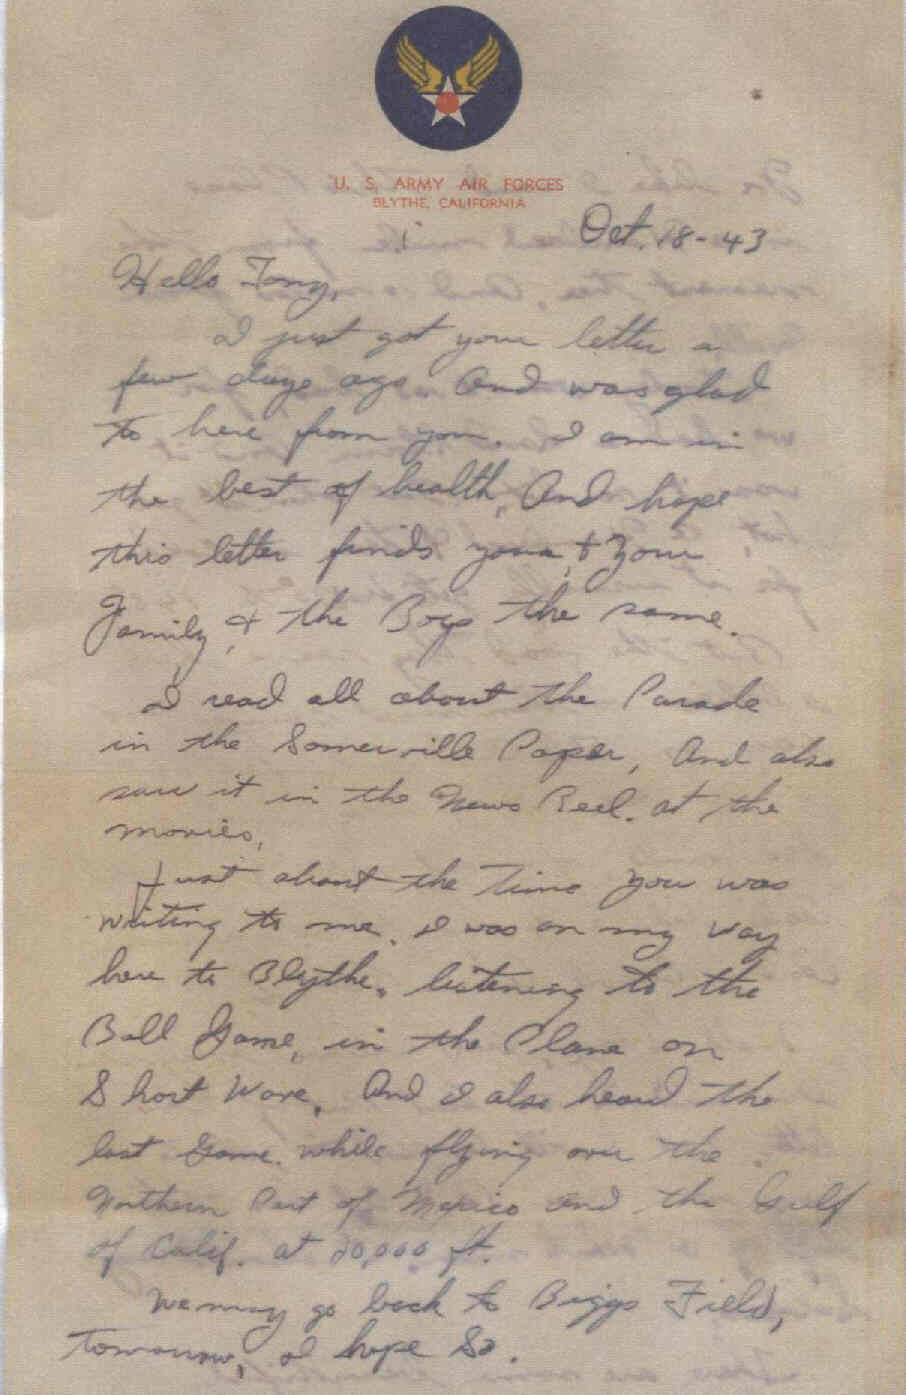 U. S. ARMY AIR FORCES
BLYTHE, CALIFORNIA
Oct. 18-43
Hello Tony,
I just got your letter a
few days ago And was glad
to here from you. I am in
the best of health, And hope
this letter finds you, + your
Family, + the Boys the same.
I read all about the Parade
in the Somerville Paper, And also
saw it in the News Reel. at the
movies,
Just about the Time you was
writing to me. I was on my way
here to Blythe. listening to the
Ball Game, in the Plane on
Short Wave. And I also heard the
last Game. while flying over the
Northern Part of Mexico and the Gulf
of Calif. at 20,000 ft.
We may go back to Biggs Field,
Tomorrow, I hope So.